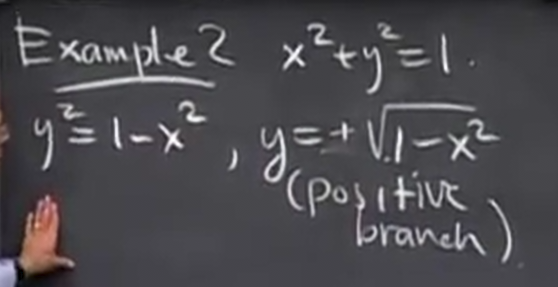 Example 2 x² + y² = 1.
y² = 1 - x² , y = + √1 - x²
(positive
branch)